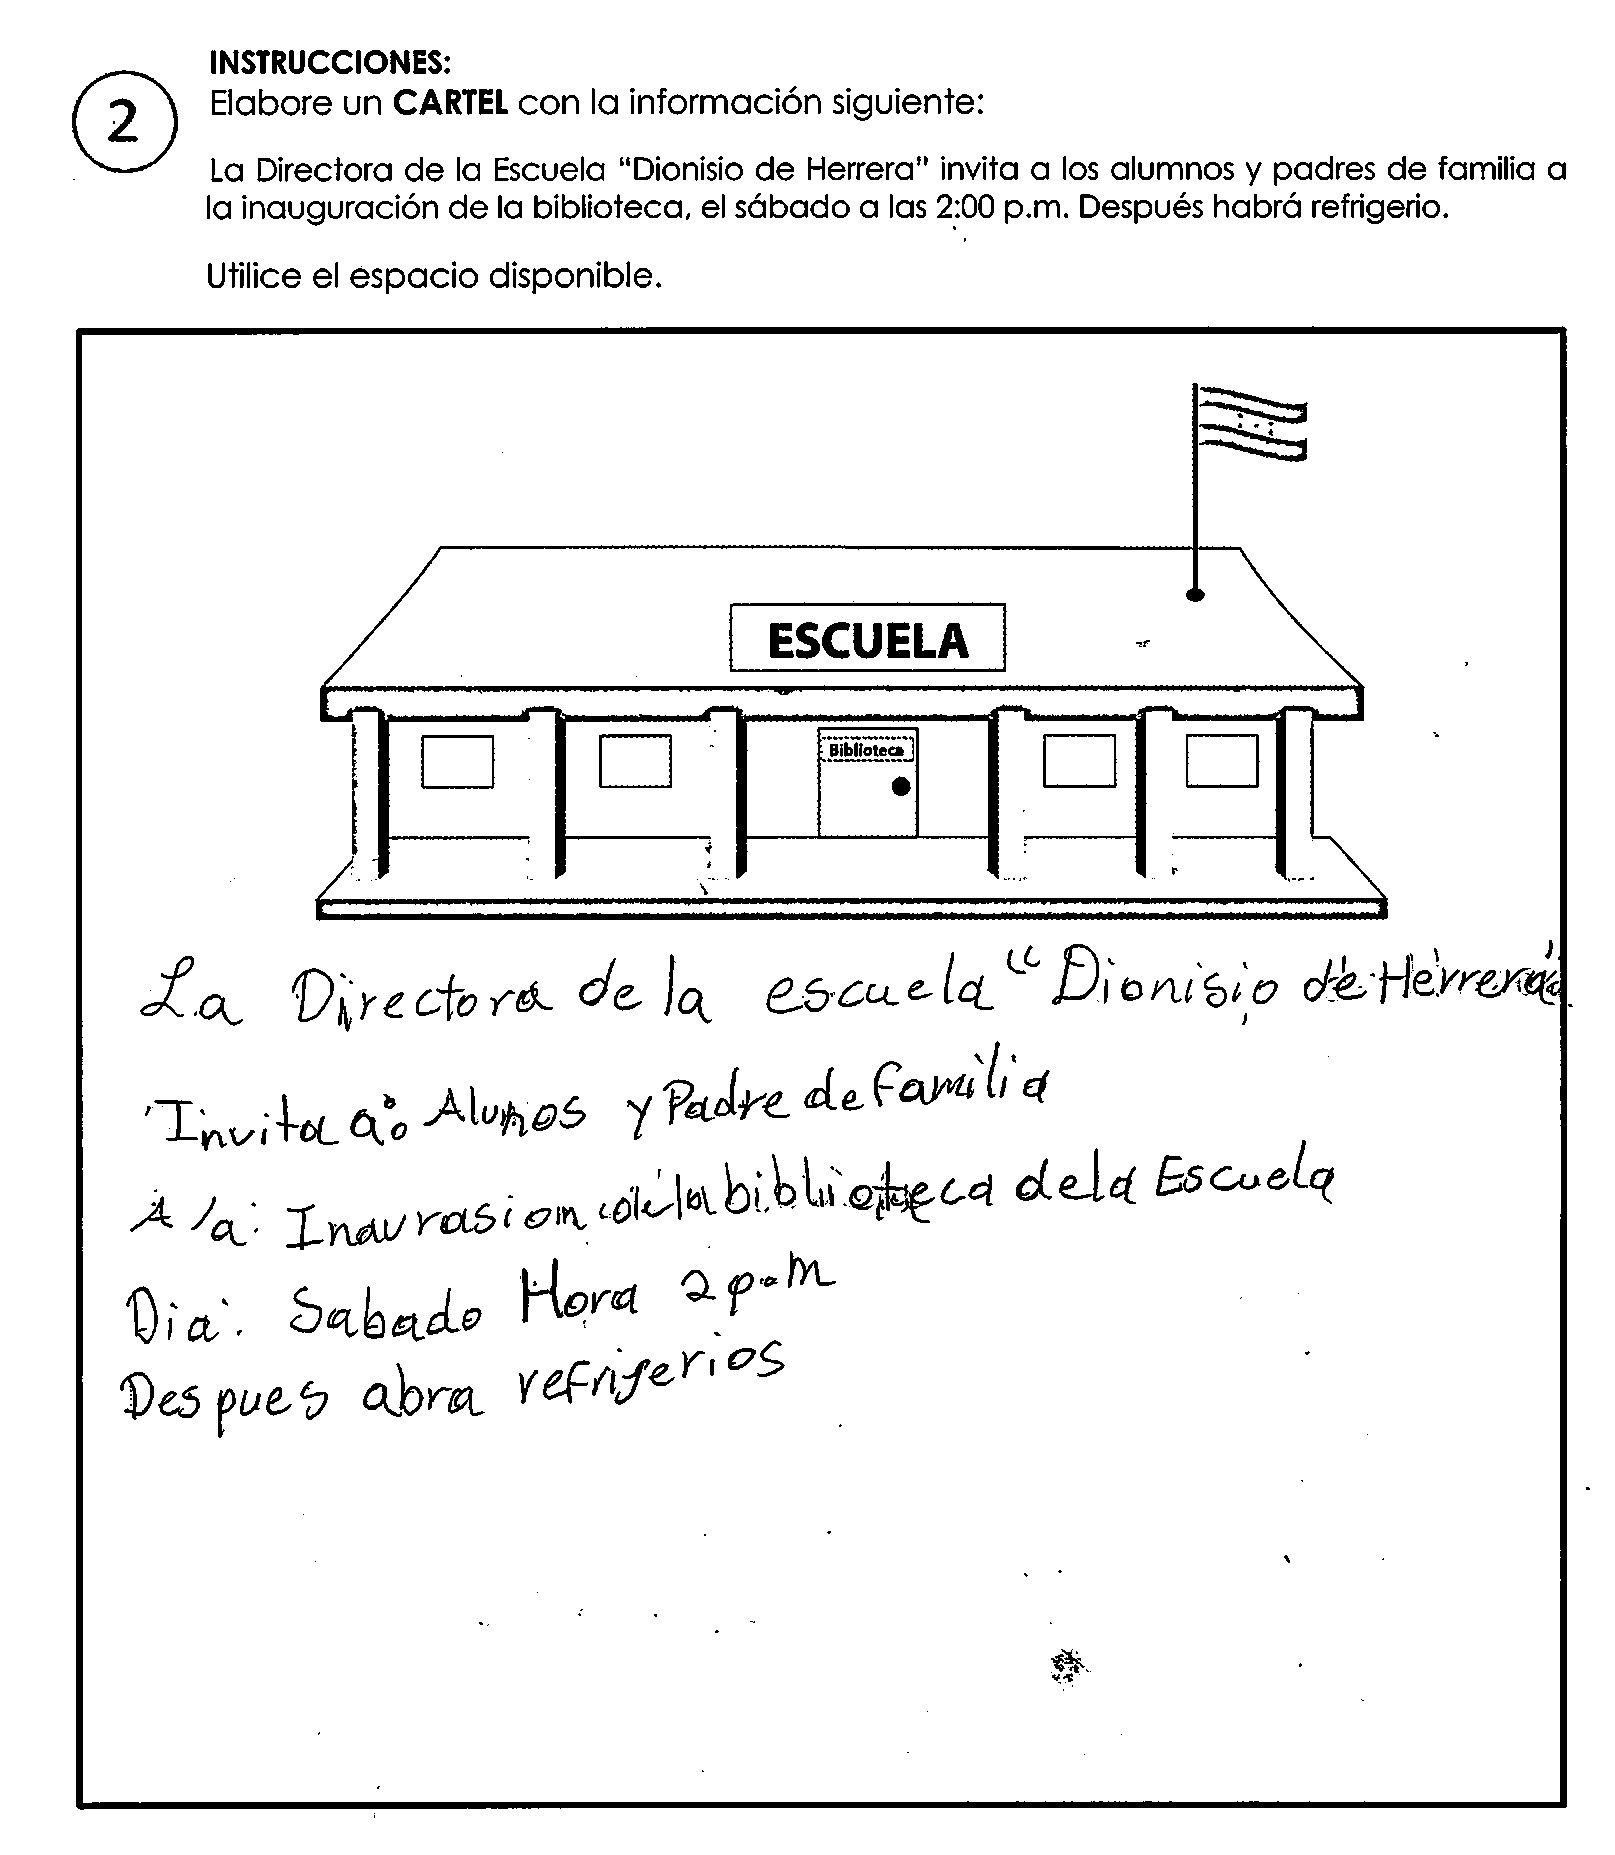 INSTRUCCIONES:
2
Elabore un CARTEL con la información siguiente:
La Directora de la Escuela "Dionisio de Herrera" invita a los alumnos y padres de familia a
la inauguración de la biblioteca, el sábado a las 2:00 p.m. Después habrá refrigerio.
Utilice el espacio disponible.
ESCUELA
Biblioteca
La Directora de la escuela "Dionisio de Herrera"
Invita a: Alumos y Padre de familia
A la: Inaurasion de la biblioteca dela Escuela
Dia: Sabado Hora 2 p.m
Despues abra refrigerios